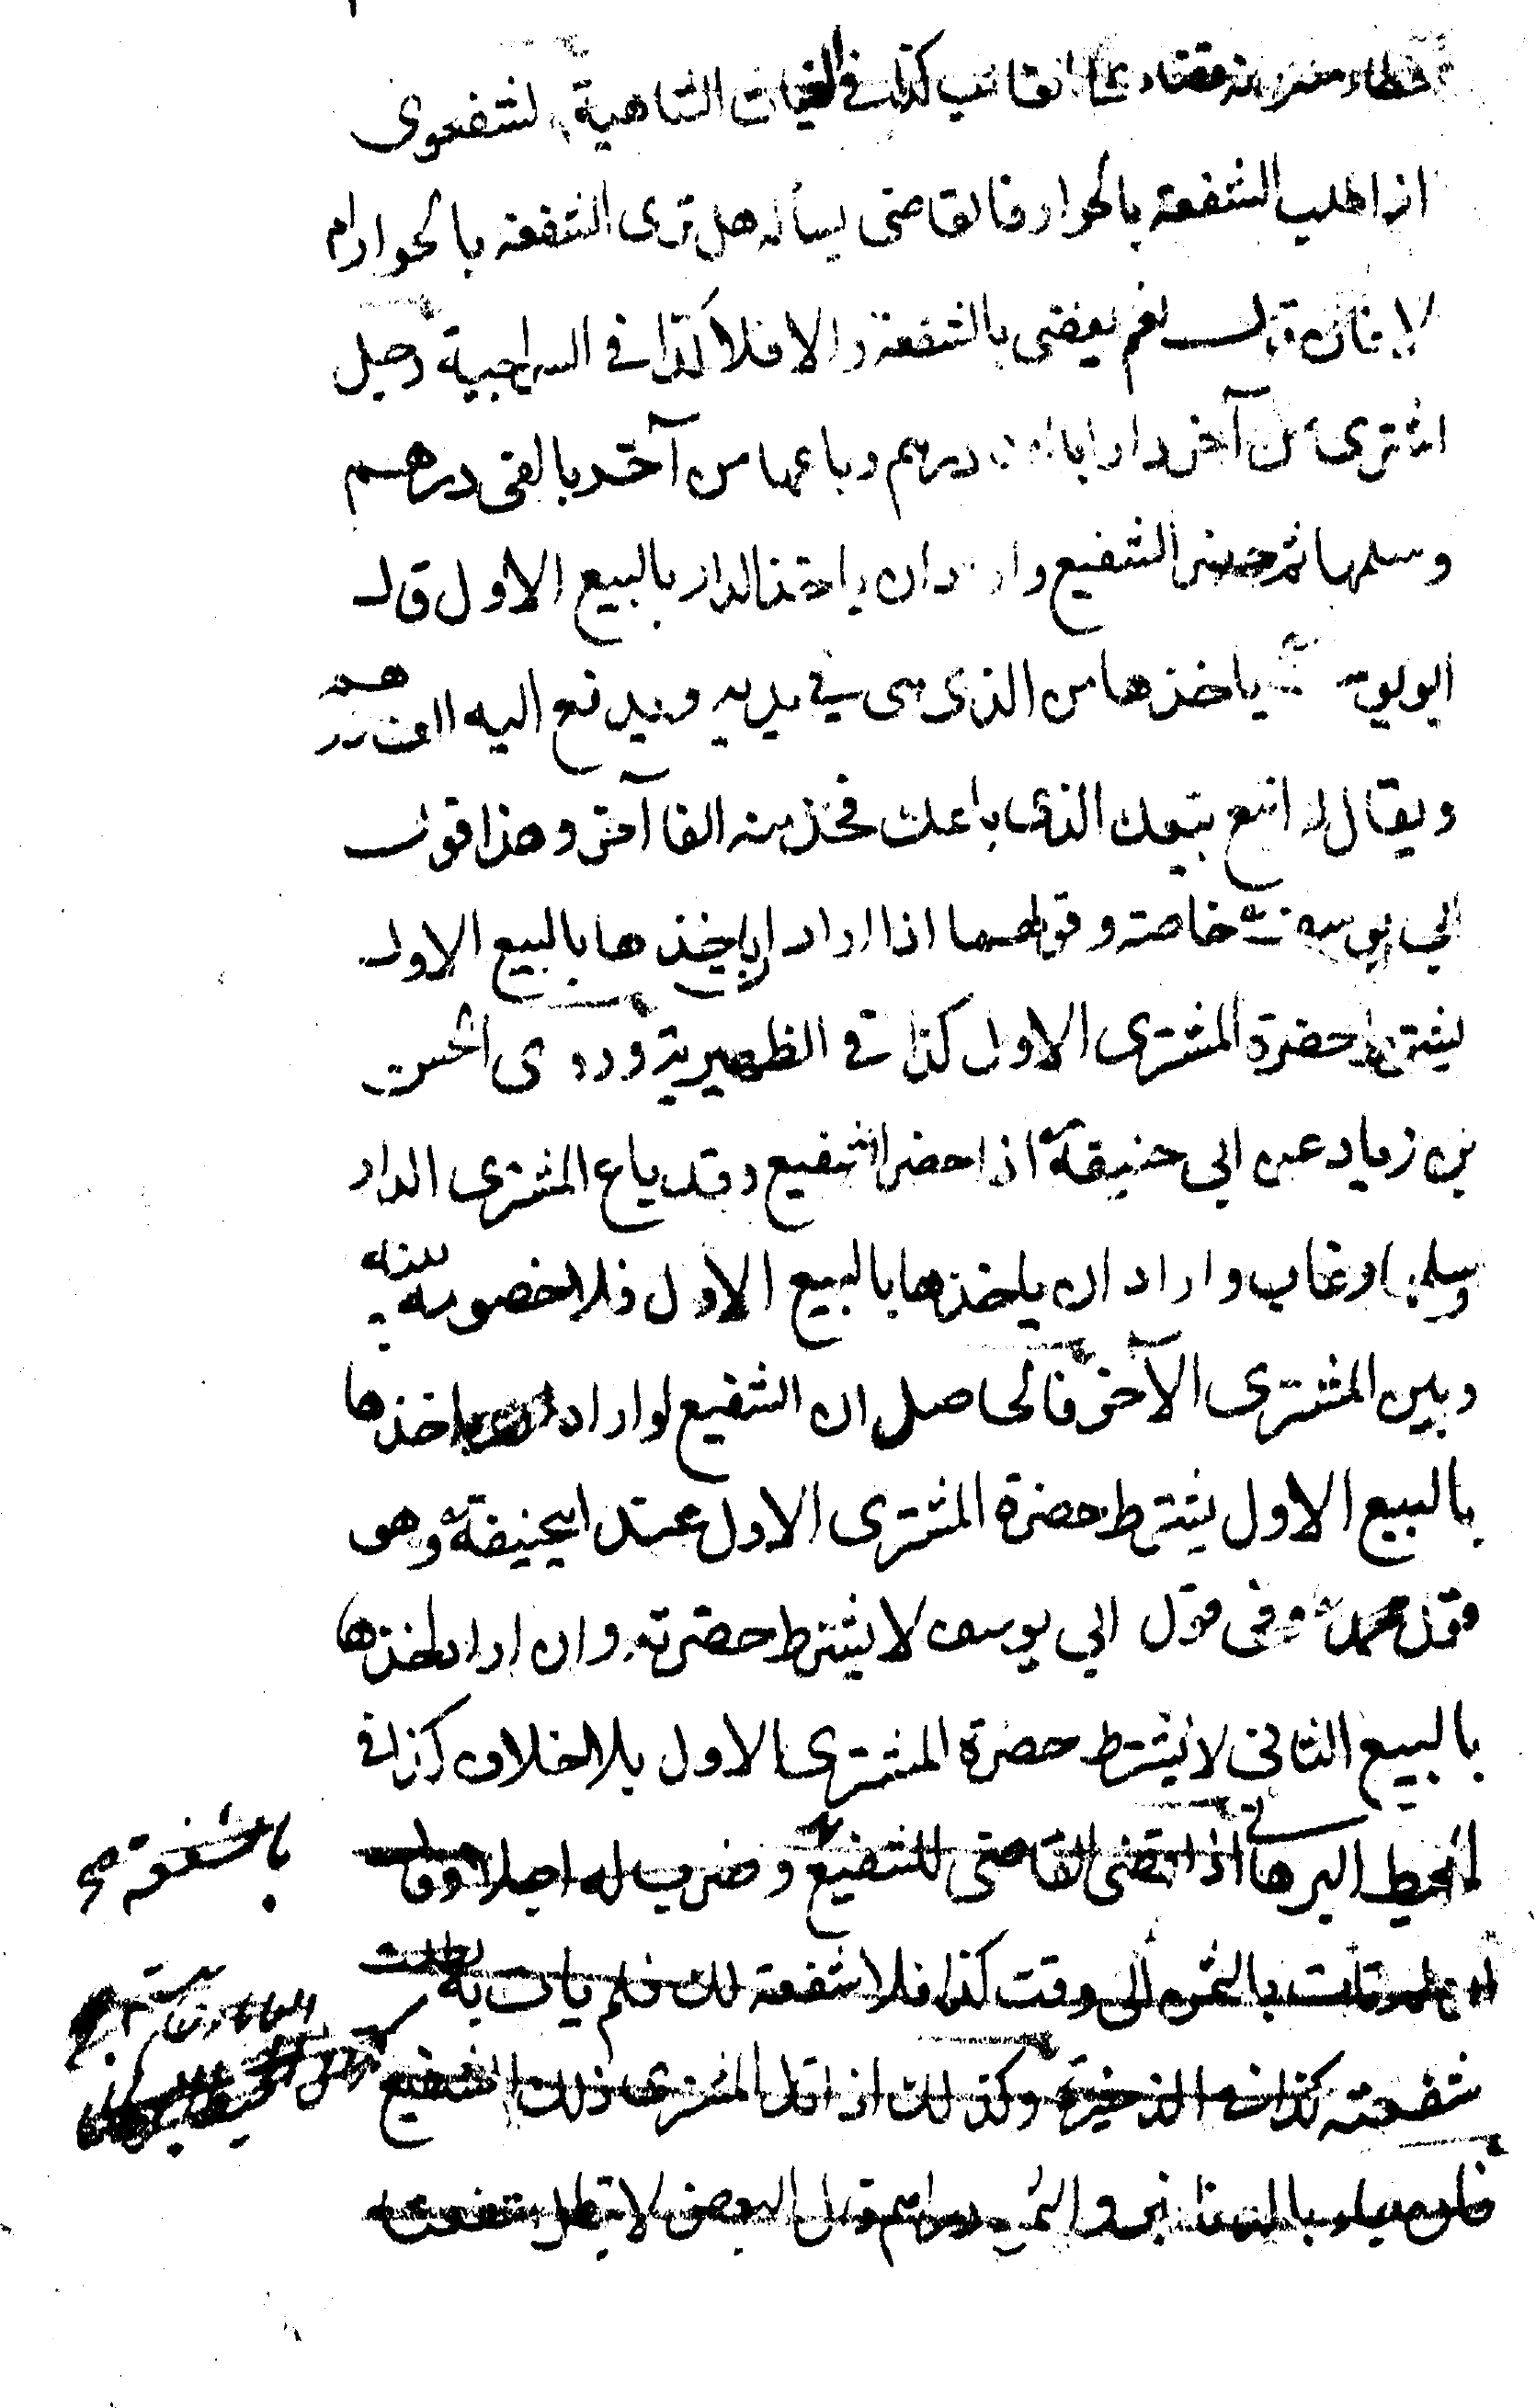 قضاء على الغائب كذا في الغياث الشاهية الشفعوى
اذا طلب الشفعة بالجوار فالقاضى يسأله هل ترى الشفعة بالجوار ام
لا فان قال نعم يقضى بالشفعة والا فلا كذا في السراجية رجل
اشترى من آخر دارا بالف درهم وباعها من آخر بالفى درهم
وسلمها ثم حضر الشفيع واراد ان ياخذ الدار بالبيع الاول قال
ابو يوسف ياخذها من الذى هى في يديه ويدفع اليه الف درهم
ويقال له اتبع بيعك الذى باعك فخذ منه الفا آخر وهذا قول
ابي يوسف خاصة وقولهما اذا اراد ان ياخذها بالبيع الاول
يشترط حضرة المشترى الاول كذا في الظهيرية وروى الحسن
بن زياد عن ابي حنيفة اذا حضر الشفيع وقد باع المشترى الدار
وسلمها وغاب واراد ان ياخذها بالبيع الاول فلا خصومة بينه
وبين المشترى الآخر فالحاصل ان الشفيع لو اراد ان ياخذها
بالبيع الاول يشترط حضرة المشترى الاول عند ابيحنيفة وهو
قول محمد وفى قول ابي يوسف لا يشترط حضرته وان اراد اخذها
بالبيع الثانى لا يشترط حضرة المشترى الاول بلا خلاف كذا فى
المحيط البرهانى اذا قضى القاضى للشفيع وضرب له اجلا وقال
بالشفعة صح
ان لم تأت بالثمن الى وقت كذا فلا شفعة لك فلم يات به بطلت
شفعته كذا فى الذخيرة وكذلك اذا قال المشترى ذلك الشفيع
فان جاء بالدنانير والثمن دراهم قال البعض لا تبطل شفعته